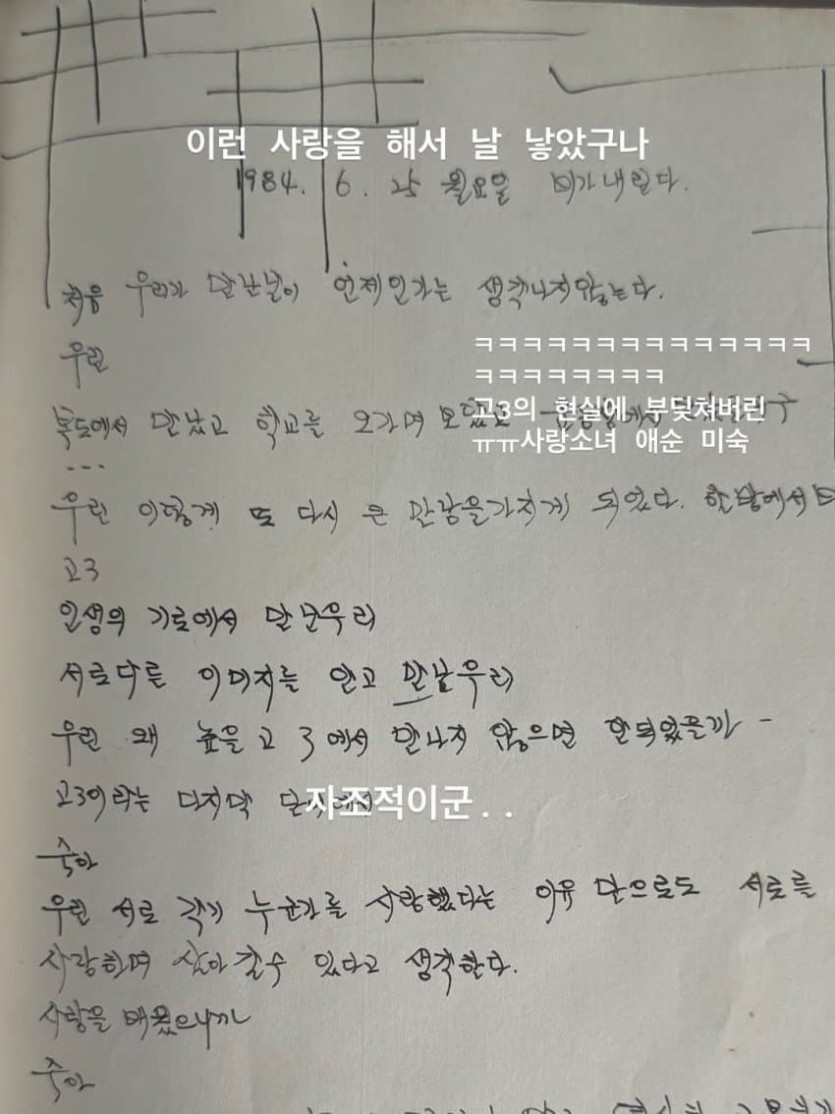 이런 사랑을 해서 날 낳았구나
1984. 6. 25 월요일 비가내린다.
처음 우리가 만난날이 언제인가는 생각나지않는다.
우린
ㅋㅋㅋㅋㅋㅋㅋㅋㅋㅋㅋㅋㅋㅋ
ㅋㅋㅋㅋㅋㅋㅋㅋ
고3의 현실에 부딪쳐버린
ㅠㅠ사랑소녀 애순 미숙
복도에서 만났고 학교를 오가며
...
우린 이렇게 또 다시 큰 만남을가지게 되었다. 한방에서
고3
인생의 기로에서 만난우리
서로다른 이미지를 안고 만난우리
우린 왜 높을고 3에서 만나지 않으면 안되었을까 -
고3이라는 마지막
자조적이군..
숙아
우린 서로 각기 누군가를 사랑했다는 이유 만으로도 서로를
사랑하며 살아갈수 있다고 생각한다.
사랑을 배웠으니까
숙아